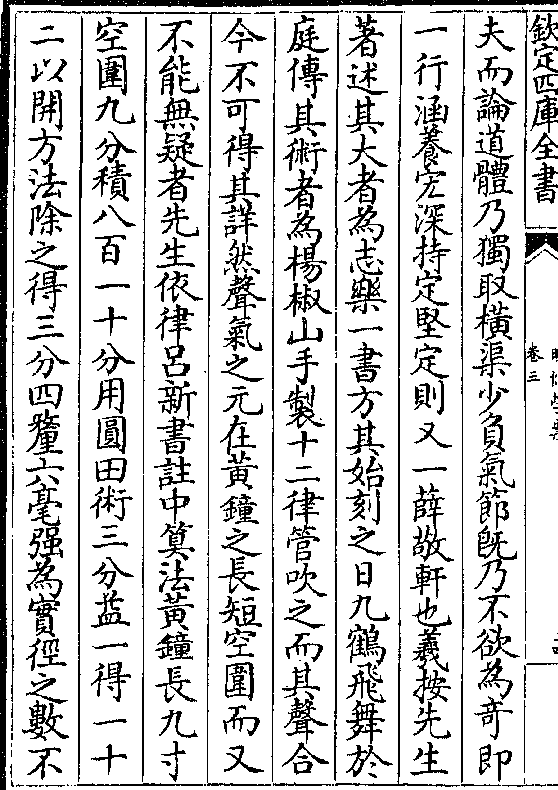 欽定四庫全書
卷三
夫而論道體乃獨取橫渠少負氣節旣乃不欲為竒即
一行涵養宏深持定堅定則又一薛敬軒也羲按先生
著述其大者為志樂一書方其始刻之日九鶴飛舞於
庭傳其術者為楊椒山手製十二律管吹之而其聲合
今不可得其詳然聲氣之元在黄鐘之長短空圍而又
不能無疑者先生依律吕新書註中算法黄鐘長九寸
空圍九分積八百一十分用圓田術三分益一得一十
二以開方法除之得三分四釐六毫强為實徑之數不